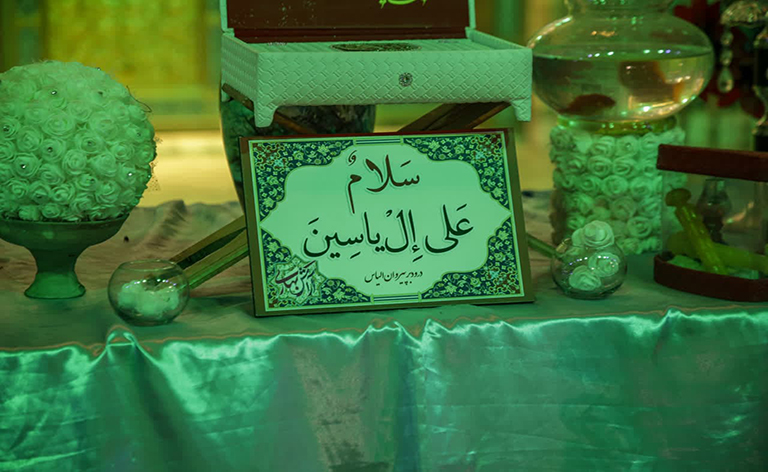 سَلَامٌ
عَلَىٰ إِلْ يَاسِينَ
درود بر پیروان الیاس